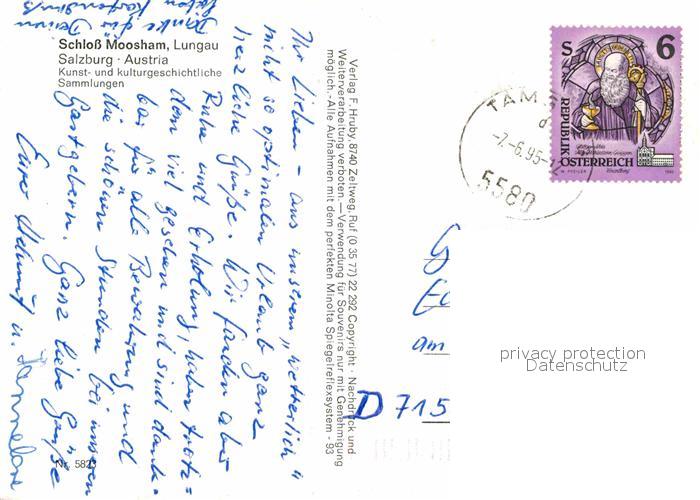 Danke für Deinen
lieben
Schloß Moosham, Lungau
Salzburg · Austria
Kunst- und kulturgeschichtliche
Sammlungen
Ihr Lieben - aus unserem "wetterlich"
nicht so optimalen Urlaub ganz
herzliche Grüße. Wir finden aber
Ruhe und Erholung, haben trotz-
dem viel gesehen und sind dank-
bar für alle Bewahrung und
die schönen Stunden bei unseren
Gastgebern. Ganz liebe Grüße
Eure Helmut u. Hannelore
Nr. 582
Verlag F. Hruby, 8740 Zeltweg, Ruf (0 35 77) 22 292 Copyright · Nachdruck und
Weiterverarbeitung verboten. – Verwendung für Souvenirs nur mit Genehmigung
möglich.-Alle Aufnahmen mit dem perfekten Minolta Spiegelreflexsystem - 93
S 6
REPUBLIK
ÖSTERREICH
TAMS
-7.-6.95-12
5580
am
D 715
privacy protection
Datenschutz